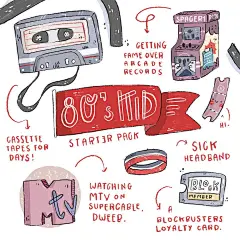 SPACER!
GETTING
FAME OVER
ARCADE
RECORDS
80's KID
STARTER PACK
HI.
CASSETTE
TAPES FOR
DAYS!
SICK
HEADBAND
WATCHING
MTV ON
SUPERCABLE,
DWEEB.
M
tv
BLOCK
MEMBER
A
BLOCKBUSTERS
LOYALTY CARD.